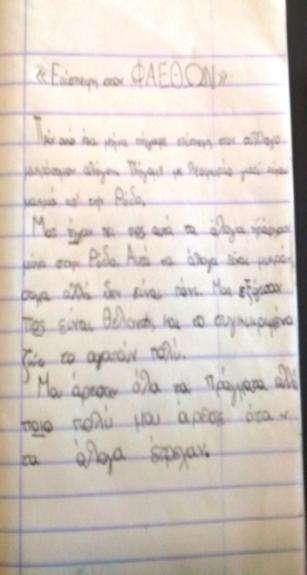 «Επίσκεψη στον ΦΑΕΘΩΝ»
Πριν από ένα μήνα πήγαμε επίσκεψη στον σύλλογο
αλόγων. Πήγαμε με λεωφορείο γιατί είναι
μακριά απ' την Ρόδο.
Μας είπαν πως αυτά τα άλογα υπάρχουν
μόνο στην Ρόδο. Αυτά τα άλογα είναι μικρό-
σωμα αλλά δεν είναι πόνι. Μας εξήγησαν
πως είναι και το συγκεκριμένο
ζώο το αγαπούν πολύ.
Μου άρεσαν όλα τα πράγματα αλλά
ποιο πολύ μου άρεσε όταν
τα άλογα έτρεχαν.